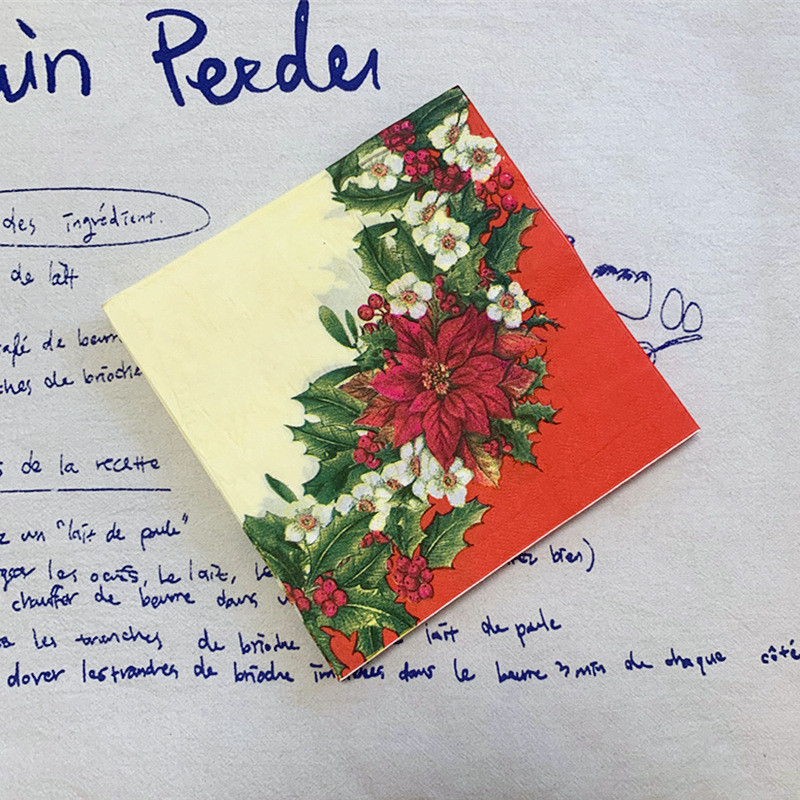 ain Perdu
des ingrédient.
de lait
café de beurre
ches de brioche
s de la recette
z un "lait de poule"
les oeufs, le lait, le bien)
chauffer de beurre dans
les tranches de brioche lait de poule
dorer les tranches de brioche dans le beurre 3 min de chaque côté